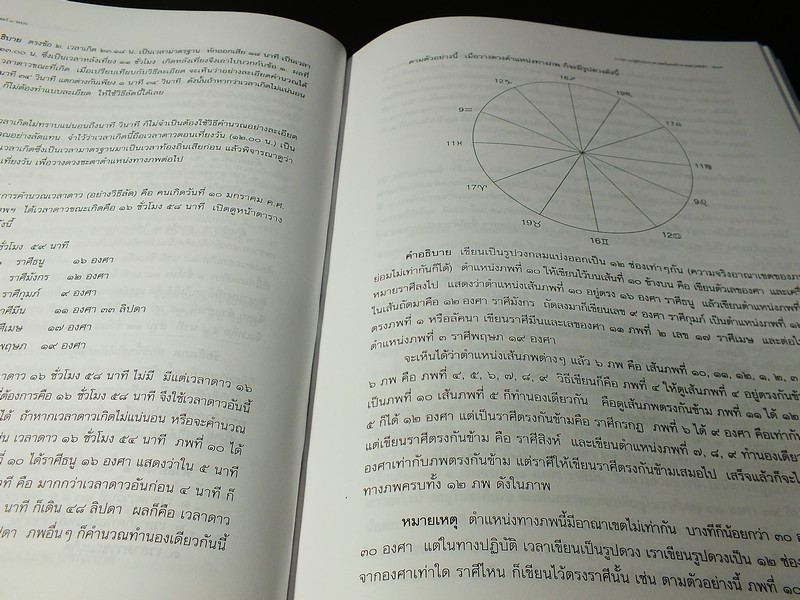 อธิบาย ตรงข้อ ๒. เวลาเกิด ๒๓.๑๘ น. เป็นเวลามาตรฐาน หักออกเสีย ๑๘ นาที เป็นเวลา
๒๓.๐๐ น. ซึ่งเป็นเวลาหลังเที่ยง ๑๑ ชั่วโมง เกิดหลังเที่ยงจึงเอาไปบวกกับข้อ ๑. ผลที่
เวลาดาวขณะที่เกิด เมื่อเปรียบเทียบกับวิธีละเอียด จะเห็นว่าอย่างละเอียดคำนวณได้
นาที ๓๔ วินาที แตกต่างกันเพียง ๑ นาที ๓๔ วินาที ดังนั้นถ้าหากว่าเวลาเกิดไม่แน่นอน
ก็ไม่ต้องทำแบบละเอียด ให้ใช้วิธีนี้ได้เลย
เวลาเกิดไม่ทราบแน่นอนถึงนาที วินาที ก็ไม่จำเป็นต้องใช้วิธีคำนวณอย่างละเอียด
วณอย่างลัดแทน จำไว้ว่าเวลาเกิดนี้ถือเวลาดาวตอนเที่ยงวัน (๑๒.๐๐ น.) เป็น
เวลาเกิดซึ่งเป็นเวลามาตรฐานมาเป็นเวลาท้องถิ่นเสียก่อน แล้วพิจารณาดูว่า
เที่ยงวัน เพื่อวางดวงชะตาตำแหน่งทางภพต่อไป
การคำนวณเวลาดาว (อย่างวิธีลัด) คือ คนเกิดวันที่ ๑๐ มกราคม ค.ศ.
เทพฯ ได้เวลาดาวขณะเกิดคือ ๑๖ ชั่วโมง ๕๘ นาที เปิดดูหน้าตาราง
ังนี้
ชั่วโมง ๕๙ นาที
ราศีธนู ๑๖ องศา
ราศีมังกร ๑๒ องศา
ราศีกุมภ์ ๙ องศา
ราศีมีน ๑๑ องศา ๓๓ ลิปดา
าศีเมษ ๑๗ องศา
พฤษภ ๑๙ องศา
าดาว ๑๖ ชั่วโมง ๕๘ นาที ไม่มี มีแต่เวลาดาว ๑๖
ที่ต้องการคือ ๑๖ ชั่วโมง ๕๘ นาที จึงใช้เวลาดาวอันนี้
ได้ ถ้าหากเวลาดาวเกิดไม่แน่นอน หรือจะคำนวณ
ช่น เวลาดาว ๑๖ ชั่วโมง ๕๔ นาที ภพที่ ๑๐ ได้
ที่ ๑๐ ได้ราศีธนู ๑๖ องศา แสดงว่าใน ๕ นาที
วที คือ มากกว่าเวลาดาวอันก่อน ๔ นาที ก็
นาที ก็เดิน ๔๘ ลิปดา ผลก็คือ เวลาดาว
ปดา ภพอื่นๆ ก็คำนวณทำนองเดียวกันนี้
ตามตัวอย่างนี้ เมื่อวางดวงตำแหน่งทางภพ ก็จะมีรูปดวงดังนี้
12♑
16♐
19♏
17♎
11♍
9♌
12♋
16♊
19♉
17♈
11♓
9♒
คำอธิบาย เขียนเป็นรูปวงกลมแบ่งออกเป็น ๑๒ ช่องเท่าๆกัน (ความจริงอาณาเขตของภพ
ย่อมไม่เท่ากันก็ได้) ตำแหน่งภพที่ ๑๐ ให้เขียนไว้บนเส้นที่ ๑๐ ข้างบน คือ เขียนตัวเลของศา และเครื่
หมายราศีลงไป แสดงว่าตำแหน่งเส้นภพที่ ๑๐ อยู่ตรง ๑๖ องศา ราศีธนู แล้วเขียนตำแหน่งภพที่
ในเส้นถัดมาคือ ๑๒ องศา ราศีมังกร ถัดลงมาก็เขียนเลข ๙ องศา ราศีกุมภ์ เป็นตำแหน่งภพที่ ๑๒
ตรงภพที่ ๑ หรือลัคนา เขียนราศีมีนและเลของศา ๑๑ ภพที่ ๒ เลข ๑๗ ราศีเมษ และต่อไป
ตำแหน่งภพที่ ๓ ราศีพฤษภ ๑๙ องศา
จะเห็นได้ว่าตำแหน่งเส้นภพต่างๆ แล้ว ๖ ภพ คือ เส้นภพที่ ๑๐, ๑๑, ๑๒, ๑, ๒, ๓
๖ ภพ คือ ภพที่ ๔, ๕, ๖, ๗, ๘, ๙ วิธีเขียนก็คือ ภพที่ ๔ ให้ดูเส้นภพที่ ๔ อยู่ตรงกันข้
เป็นภพที่ ๑๐ เส้นภพที่ ๕ ก็ทำนองเดียวกัน คือดูเส้นภพตรงกันข้าม ภพที่ ๑๑ ได้ ๑๒
๕ ก็ได้ ๑๒ องศา แต่เป็นราศีตรงกันข้ามคือ ราศีกรกฎ ภพที่ ๖ ได้ ๙ องศา คือเท่ากับ
แต่เขียนราศีตรงกันข้าม คือ ราศีสิงห์ และเขียนตำแหน่งภพที่ ๗, ๘, ๙ ทำนองเดียว
องศาเท่ากับภพตรงกันข้าม แต่ราศีให้เขียนราศีตรงกันข้ามเสมอไป เสร็จแล้วก็จะไ
ทางภพครบทั้ง ๑๒ ภพ ดังในภาพ
หมายเหตุ ตำแหน่งทางภพนี้มีอาณาเขตไม่เท่ากัน บางทีก็น้อยกว่า ๓๐ อง
๓๐ องศา แต่ในทางปฏิบัติ เวลาเขียนเป็นรูปดวง เราเขียนรูปดวงเป็น ๑๒ ช่อง
จากองศาเท่าใด ราศีไหน ก็เขียนไว้ตรงราศีนั้น เช่น ตามตัวอย่างนี้ ภพที่ ๑๐